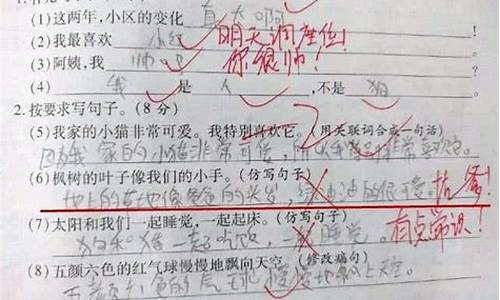 (1)这两年,小区的变化 真大啊
(2)我最喜欢 小红 明天调座位!
(3)阿姨,我 帅吧 你很帅!
(4) 我 是 人 ,不是 狗
2.按要求写句子。(8分)
(5)我家的小猫非常可爱。我特别喜欢它。(用关联词合成一句话)
因为我家的小猫非常可爱,所以我 非常喜欢它。
(6)枫树的叶子像我们的小手。(仿写句子)
地上的草地像爸爸的头发,绿油油的很可爱。 抗/爹!
(7)太阳和我们一起睡觉,一起起床。(仿写句子)
狗和猪一起吃饭,一起睡觉。 有点常识!
(8)五颜六色的红气球慢慢地飘向天空。(修改病句)
五颜六色的气球慢慢地飘上天空。